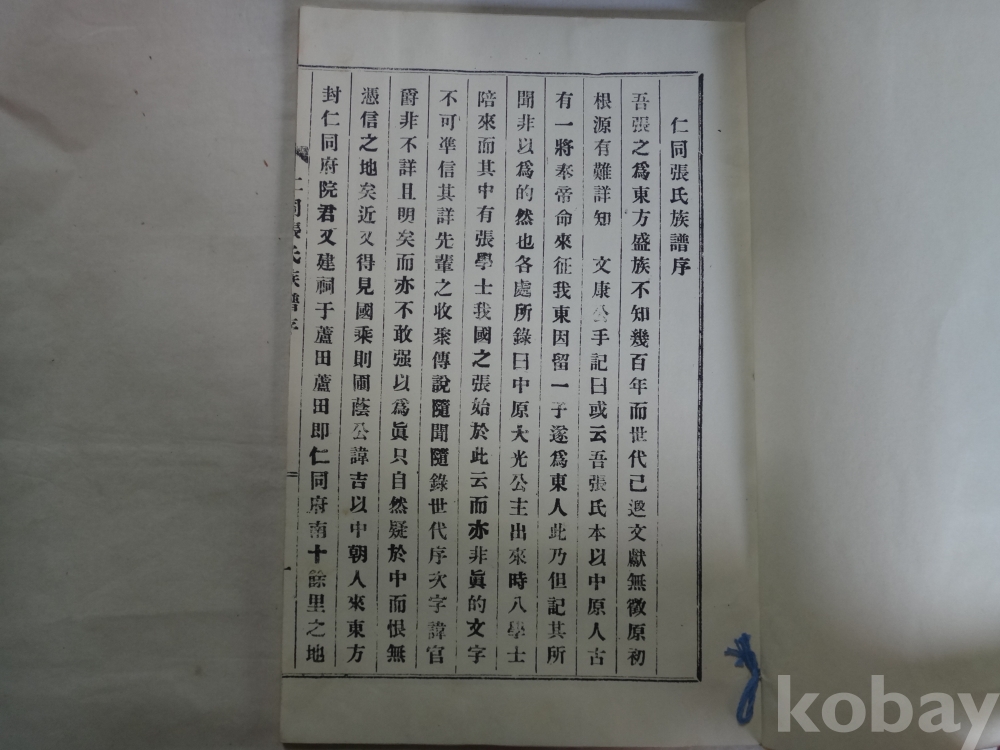 仁同張氏族譜序
吾張之爲東方盛族不知幾百年而世代已邈文獻無徵原初
根源有難詳知 文康公手記曰或云吾張氏本以中原人古
有一將奉帝命來征我東因留一子遂爲東人此乃但記其所
聞非以爲的然也各處所錄曰中原大光公主出來時八學士
陪來而其中有張學士我國之張始於此云而亦非眞的文字
不可準信其詳先輩之收聚傳說隨聞隨錄世代序次字諱官
爵非不詳且明矣而亦不敢强以爲眞只自然疑於中而恨無
憑信之地矣近又得見國乘則圃蔭公諱吉以中朝人來東方
封仁同府院君又建祠于蘆田蘆田即仁同府南十餘里之地
仁同張氏族譜序
一
kobay